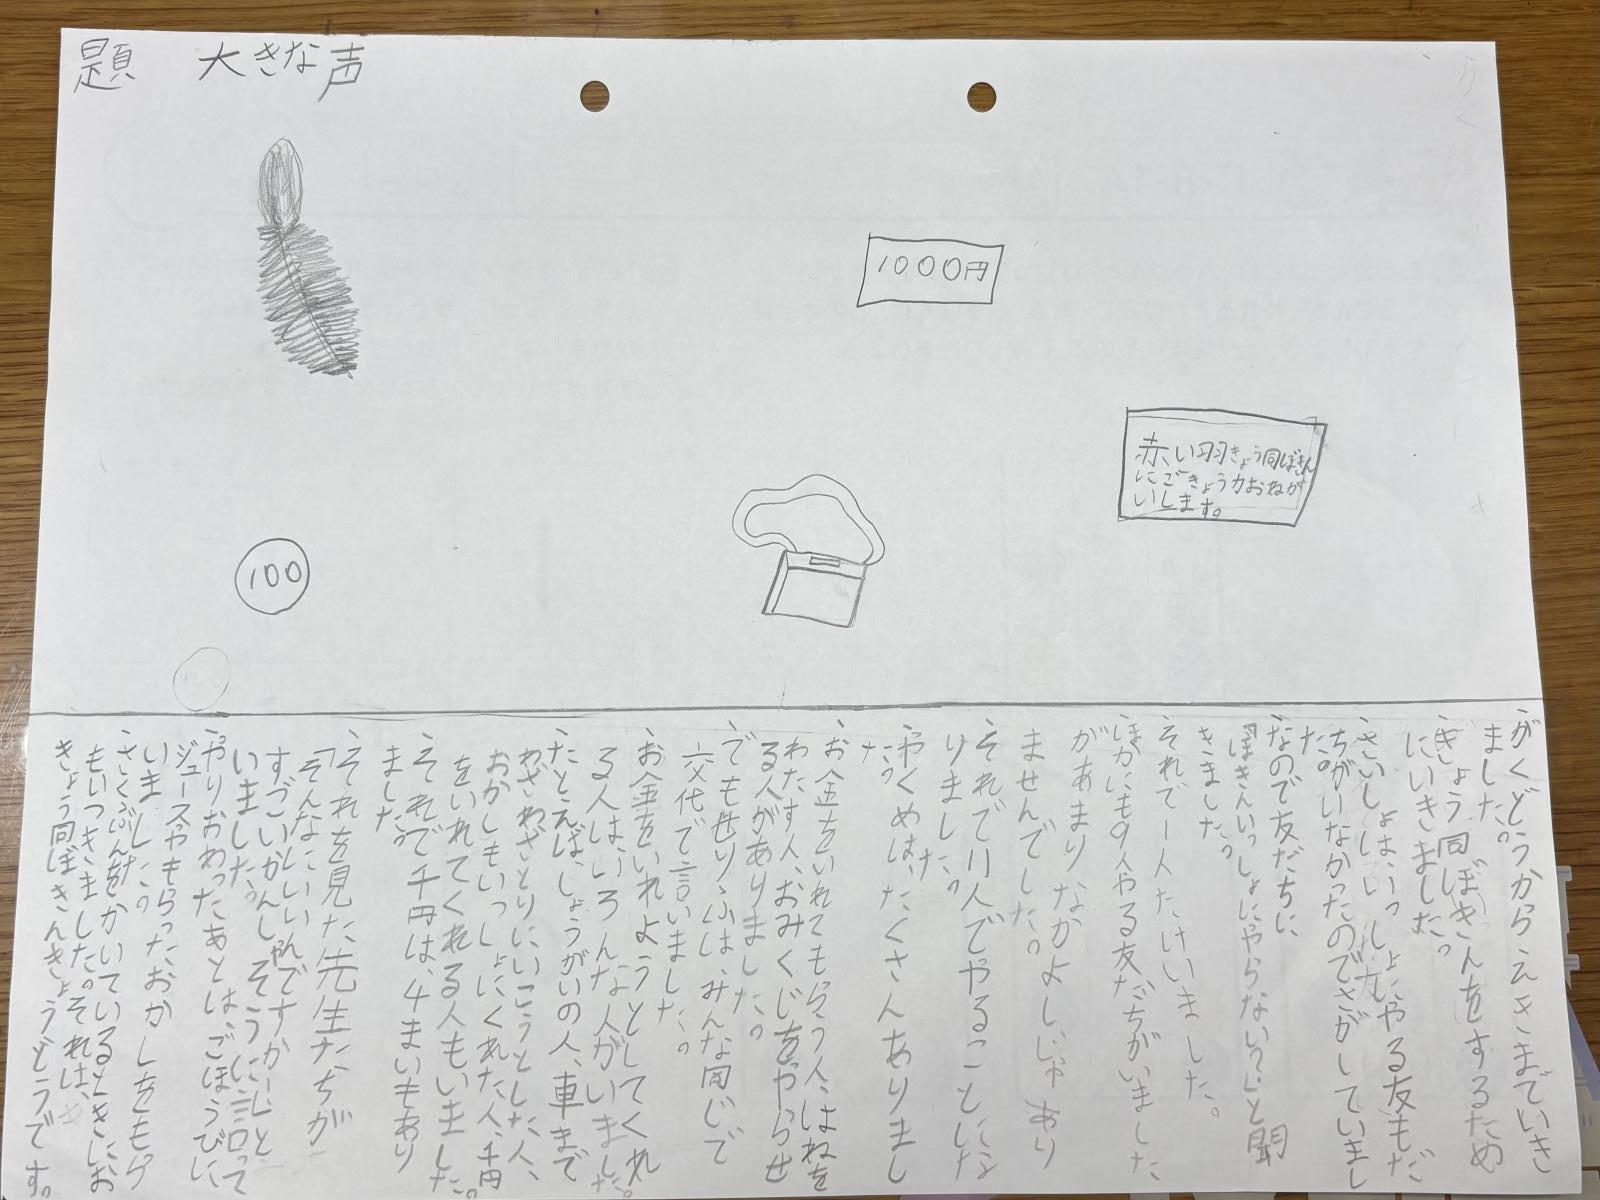 題 大きな声
1000円
赤い羽きょう同ぼきん
にごきょう力おねが
いします。
100
100
がくどうからえきまでいき
ました。
きょう同ぼきんをするため
にいきました。
さいしょは、いっしょにやる友もだ
ちがいなかったのでさがしていまし
た。
なので友だちに
「ぼきんいっしょにやらない？」と聞
きました。
それで一人たけいました。
ほかにも9人やる友だちがいました
があまりなかよしじゃあり
ませんでした。
それで11人でやることにな
りました。
やくめは、たくさんありまし
た。
お金をいれてもらう人、はねを
わたす人、おみくじをやらせ
る人がありました。
でもせりふは、みんな同じで
交代で言いました。
お金をいれようとしてくれ
る人は、いろんな人がいました。
たとえば、しょうがいの人、車まで
わざわざとりにいこうとした人、
おかしもいっしょにくれた人、千円
をいれてくれる人もいました。
それで千円は、4まいもあり
ました。
それを見た先生たちが
「そんなにいいんですか！」と
すごいかんしゃ
いました。そうに言って
やりおわったあとは、ごほうびに
ジュースやもらったおかしをもら
いました。
さくぶんをかいているときにお
もいつきました。それは、
きょう同ぼきんきょうどうです。